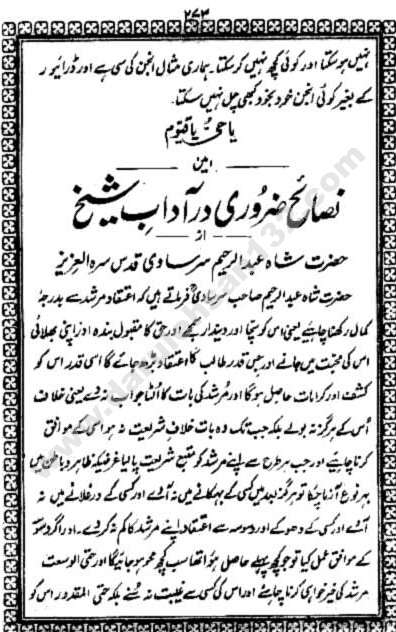 ۲۷۳
نہیں ہو سکتا اور کوئی کچھ نہیں کر سکتا۔ ہماری مثال انجن کی سی ہے اور ڈرائیور
کے بغیر کوئی انجن خود بخود کبھی چل نہیں سکتا۔
یا حیُّ یا قیّوم
امین
نصائح ضروری در آدابِ شیخ
از
حضرت شاہ عبدالرحیم سرساوی قدس سرہ العزیز
حضرت شاہ عبدالرحیم صاحب سرساوی فرماتے ہیں کہ اعتقاد مرشد سے بدرجۂ
کمال رکھنا چاہیے یعنی اس کو سچا اور دیندار سمجھے اور حق کا مقبول بندہ اور اپنی بھلائی
اس کی محبت میں جانے اور جس قدر طالب کا اعتقاد بڑھ جائے گا اسی قدر اس کو
کشف اور کرامات حاصل ہوگا اور مُرشد کی بات کا اُلٹا جواب نہ دے یعنی خلاف
اُس کے ہرگز نہ بولے بلکہ جب تک وہ بات خلافِ شریعت نہ ہو اسی کے موافق
کرنا چاہیے اور جب ہر طرح سے اپنے مرشد کو متبع شریعت پالیا غرضیکہ ظاہر و باطن میں
بہر نوع آزما چکا تو ہرگز بعد میں کسی کے بہکانے میں نہ آوے اور کسی کے ورغلانے میں نہ
آوے اور کسی کے دھوکے اور وسوسہ سے اعتقاد اپنے مرشد کا کم نہ کر دے۔ اور اگر وسوسہ
کے موافق عمل کیا تو جو کچھ پہلے حاصل ہوا تھا سب کچھ محو ہو جائیگا اور حتی الوسعت
مرشد کی خیر خواہی کرنا چاہئے اور اس کی کسی سے غیبت نہ سُنے بلکہ حتی المقدور اس کو